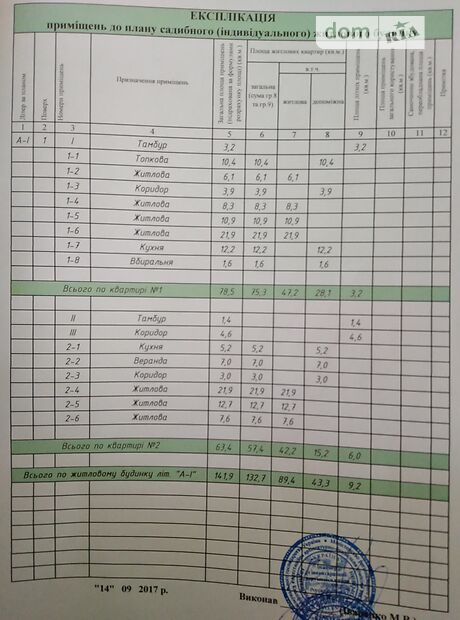 ЕКСПЛІКАЦІЯ
приміщень до плану садибного (індивідуального) житлового будинку
dom RIA
Літер за планом
Поверх
Номери приміщень
Призначення приміщень
Загальна площа приміщень (підрахована за формулами розрахунку площі) (кв.м.)
Площа житлових квартир (кв.м.)
в т.ч.
загальна (сума гр.8 та гр.9)
житлова
допоміжна
Площа літніх приміщень (кв.м.)
Площа приміщень загального користування (кв.м.)
Самочинно збудована, переобладнана площа приміщень (кв.м.)
Примітки
1 2 3 4 5 6 7 8 9 10 11 12
А-І 1 І Тамбур 3,2 3,2
1-1 Топкова 10,4 10,4 10,4
1-2 Житлова 6,1 6,1 6,1
1-3 Коридор 3,9 3,9 3,9
1-4 Житлова 8,3 8,3 8,3
1-5 Житлова 10,9 10,9 10,9
1-6 Житлова 21,9 21,9 21,9
1-7 Кухня 12,2 12,2 12,2
1-8 Вбиральня 1,6 1,6 1,6
Всього по квартирі №1 78,5 75,3 47,2 28,1 3,2
ІІ Тамбур 1,4 1,4
ІІІ Коридор 4,6 4,6
2-1 Кухня 5,2 5,2 5,2
2-2 Веранда 7,0 7,0 7,0
2-3 Коридор 3,0 3,0 3,0
2-4 Житлова 21,9 21,9 21,9
2-5 Житлова 12,7 12,7 12,7
2-6 Житлова 7,6 7,6 7,6
Всього по квартирі №2 63,4 57,4 42,2 15,2 6,0
Всього по житловому будинку літ. "А-І" 141,9 132,7 89,4 43,3 9,2
"14" 09 2017 р.
Виконав